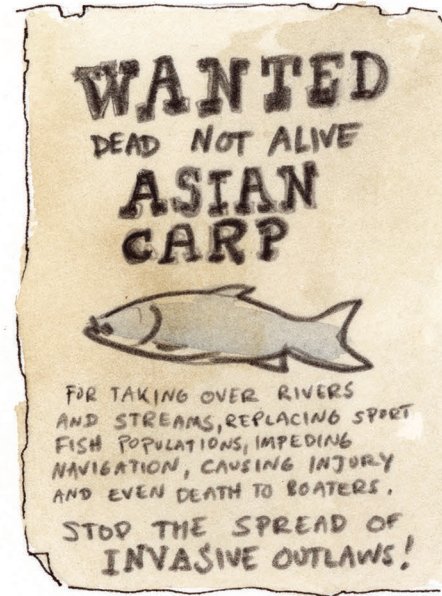 WANTED
DEAD NOT ALIVE
ASIAN
CARP
FOR TAKING OVER RIVERS
AND STREAMS, REPLACING SPORT
FISH POPULATIONS, IMPEDING
NAVIGATION, CAUSING INJURY
AND EVEN DEATH TO BOATERS.
STOP THE SPREAD OF
INVASIVE OUTLAWS!